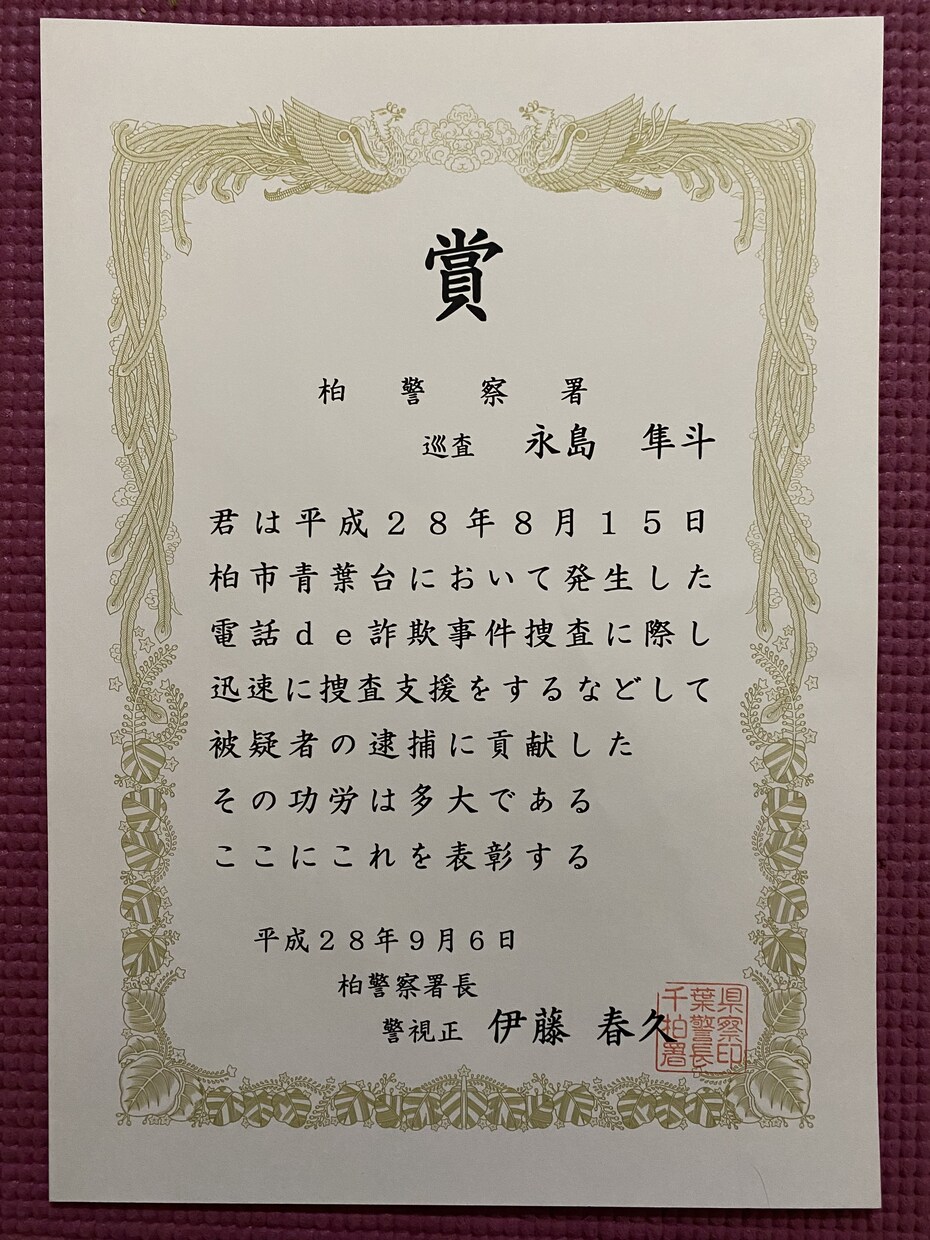 賞
柏警察署
巡査 永島 隼斗
君は平成２８年８月１５日
柏市青葉台において発生した
電話ｄｅ詐欺事件捜査に際し
迅速に捜査支援をするなどして
被疑者の逮捕に貢献した
その功労は多大である
ここにこれを表彰する
平成２８年９月６日
柏警察署長
警視正 伊藤 春久
千葉県
柏警察
署長印